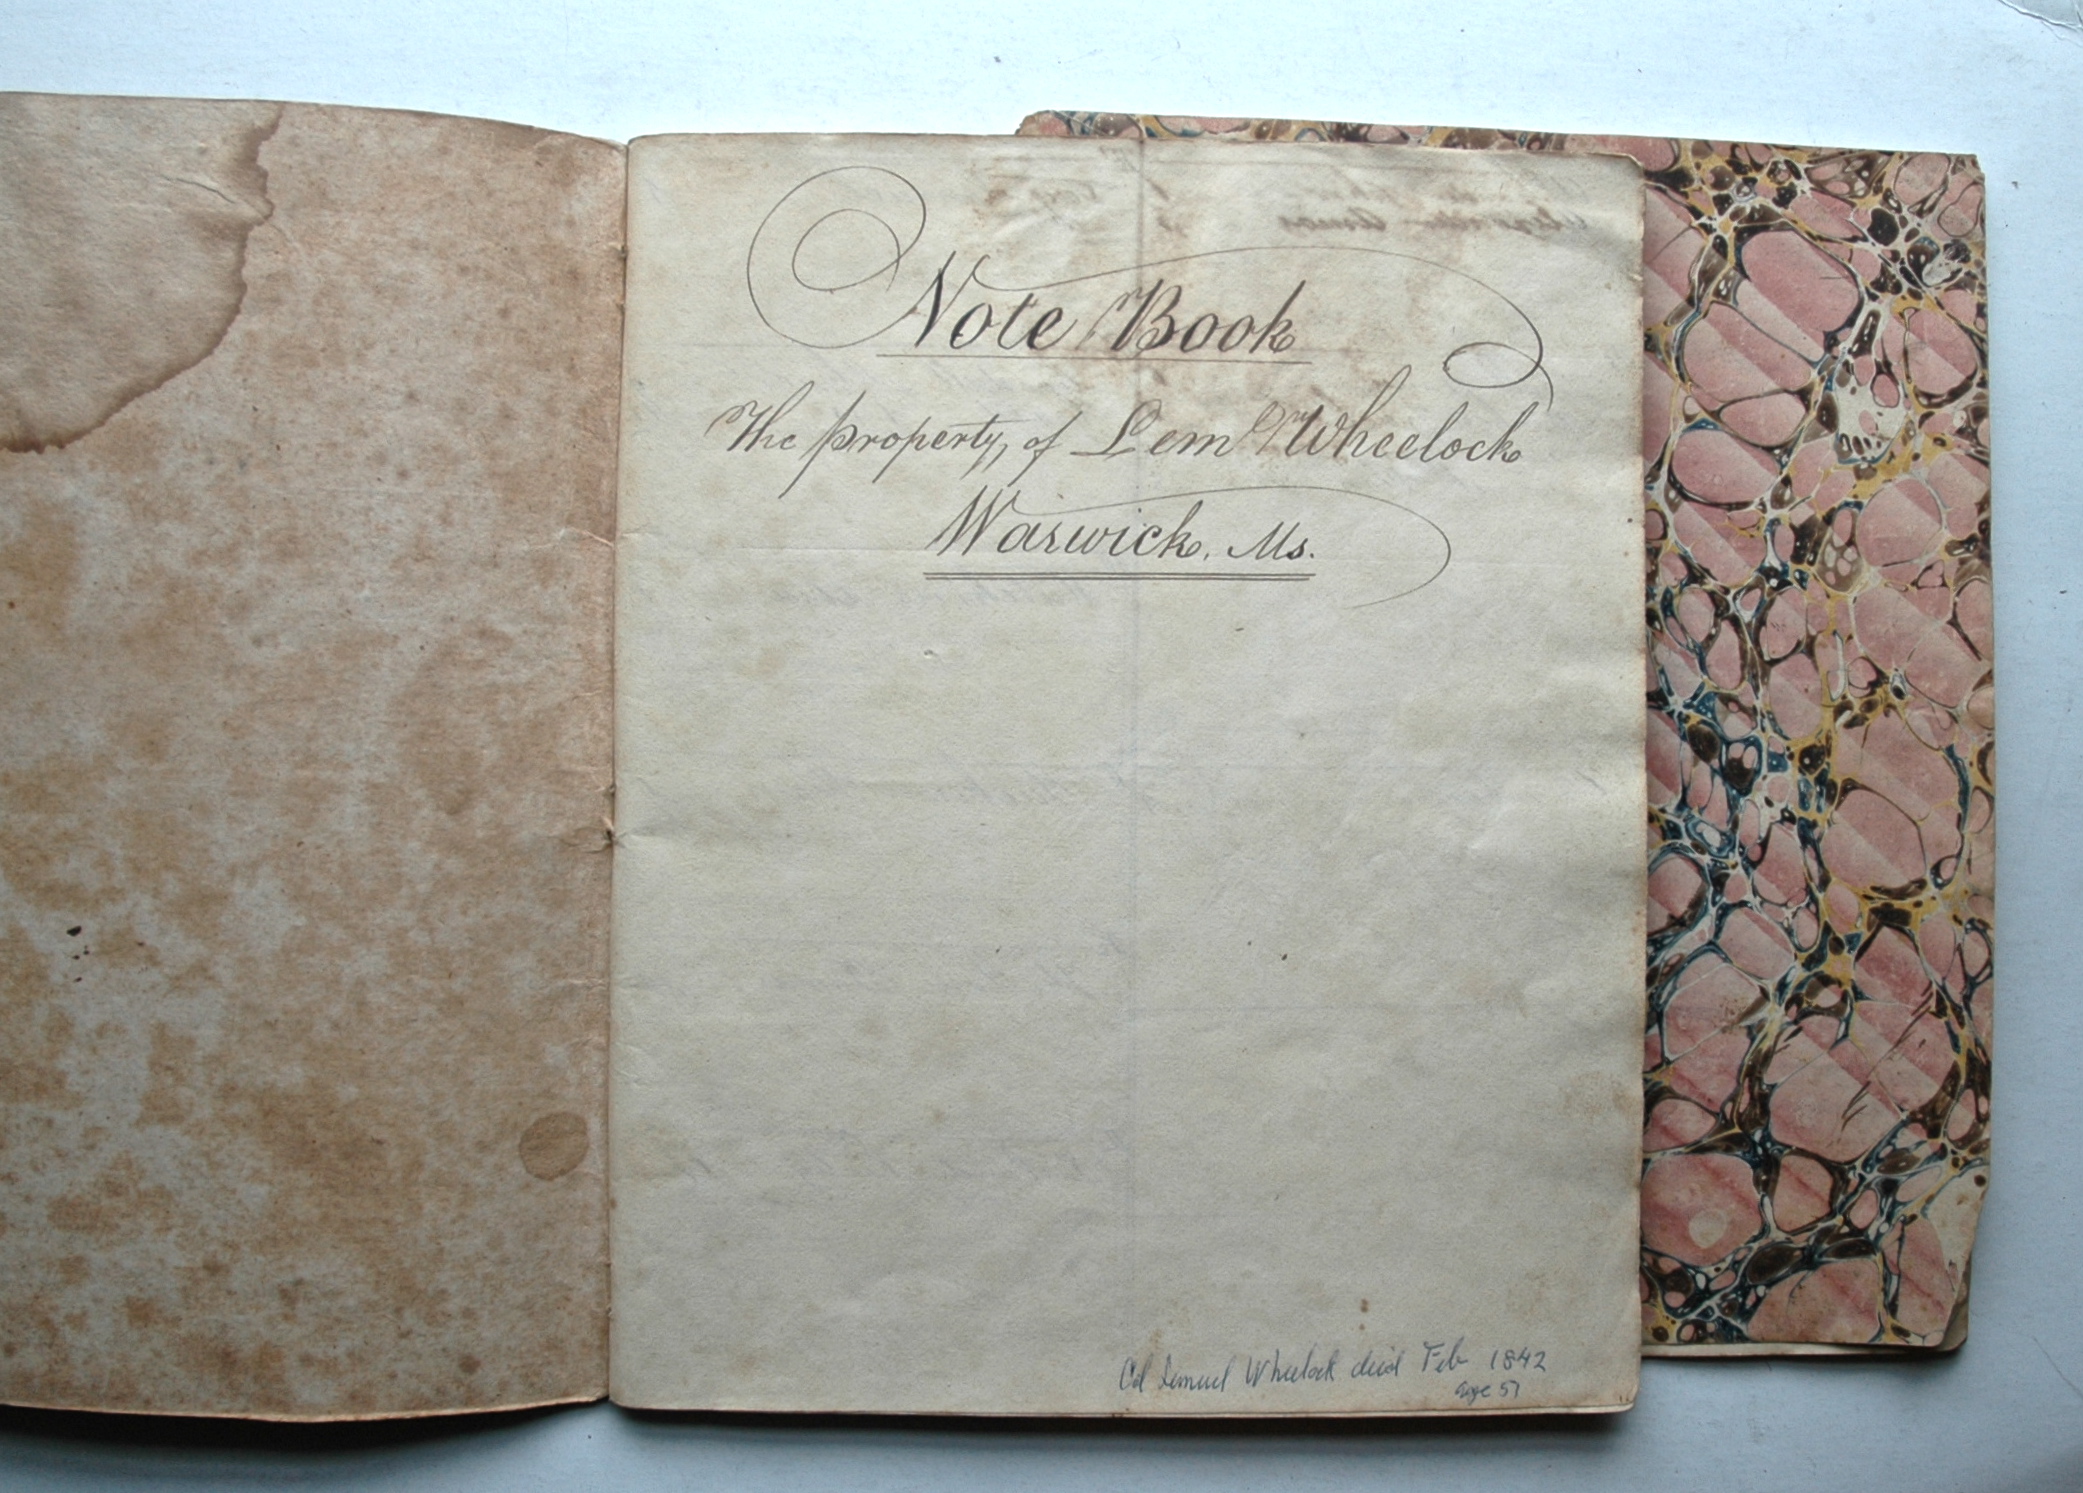 Note Book
The property, of Lem Wheelock
Warwick. Ms.
Col Lemuel Wheelock died Feb 1842
age 51